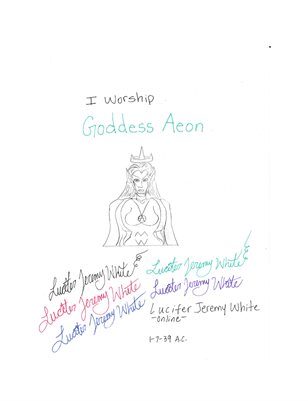 I Worship
Goddess Aeon
Lucifer Jeremy White
Lucifer Jeremy White
Lucifer Jeremy White
Lucifer Jeremy White
Lucifer Jeremy White
Lucifer Jeremy White
-online-
1-7-39 A.C.